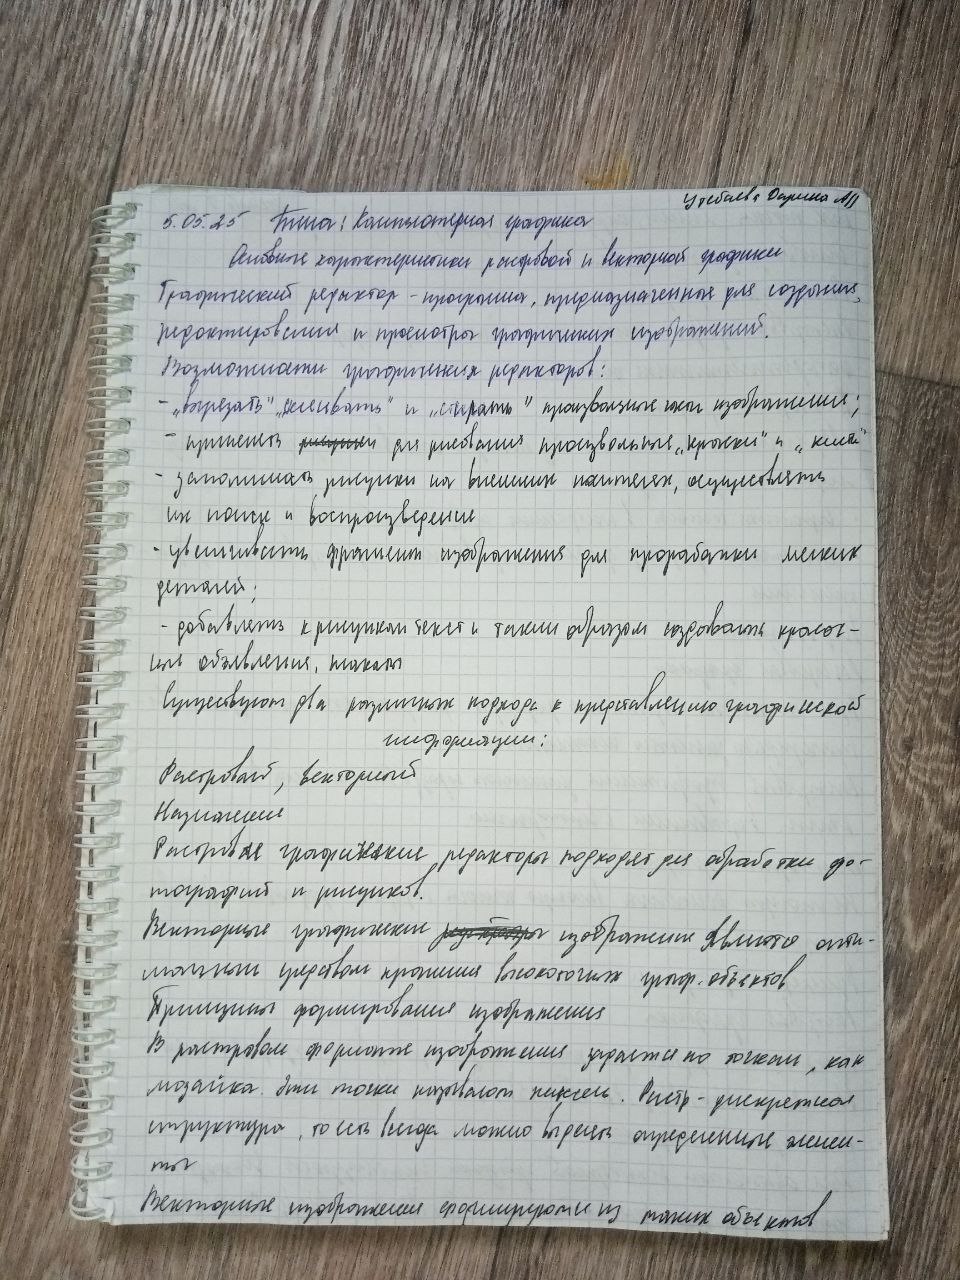 Утебаева Дарина
5.05.25 Тема: Компьютерная графика
Основные характеристики растровой и векторной графики
Графический редактор - программа, предназначенная для создания,
редактирования и просмотра графических изображений.
Возможности графических редакторов:
- „вырезать" „склеивать" и „стирать" произвольные части изображения;
- применять для рисования произвольные „краски" и „кисти"
- запоминать рисунки на внешних носителях, осуществлять
их поиск и воспроизведение
- увеличивать фрагмент изображения для проработки мелких
деталей;
- добавлять к рисункам текст и таким образом создавать красоч-
ные объявления, плакаты
Существуют два различных подхода к представлению графической
информации:
Растровый, векторный
Назначение
Растровые графические редакторы подходят для обработки фо-
тографий и рисунков.
Векторные графические изображения являются опти-
мальным средством хранения высокоточных граф. объектов
Принципы формирования изображения
В растровом формате изображения задается по точкам, как
мозайка. Эти точки называют пиксель. Растр - дискретная
структура, то есть всегда можно выделить определенные элемен-
ты
Векторные изображения формируются из таких объектов